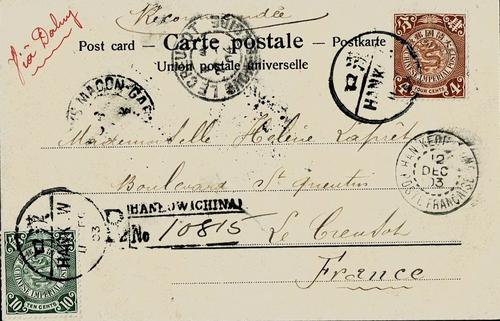 Recommandée
Via Dalny
Post card – Carte postale – Postkarte
Union postale universelle
CHINESE IMPERIAL POST
4 4
FOUR CENTS
LE CREUSOT
HANK W
MACON-GARE
Mademoiselle Hélène Lapret
HANKEOU
12
DEC
03
POSTE FRANCAISE
Boulevard St Quentin
HANKOW (CHINA)
R
No 10815
Le Creusot
France
HANK W
03
CHINESE IMPERIAL POST
10 10
TEN CENTS